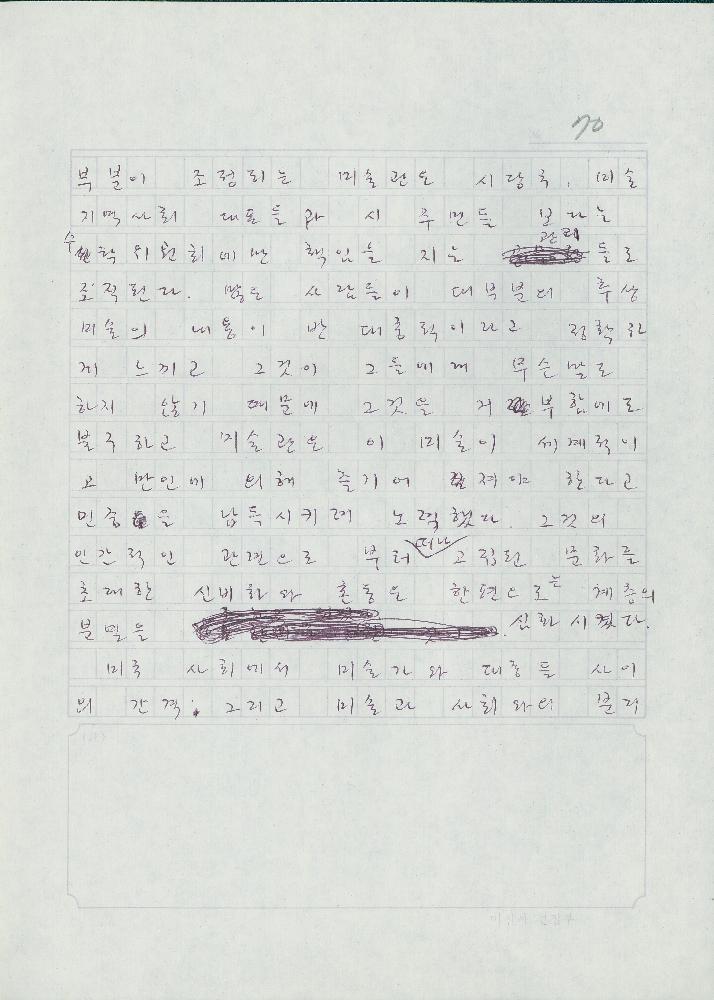 70
부분이 조정되는 미술관은 시당국, 미술
지역사회 대표들과 시 주민들 보다는
수탁위원회에만 책임을 지는 관리 들로
조직된다. 많은 사람들이 대부분의 추상
미술의 내용이 반 대중적이라고 정확하
게 느끼고 그것이 그들에게 무슨 말로
하지 않기 때문에 그것을 거부함에도
불구하고 미술관은 이 미술이 세계적이
고 만인에 의해 즐기어 져야 한다고
민중을 납득시키려 노력했다. 그것의
인간적인 관련으로 부터 떠나 고립된 문화를
초래한 신비화와 혼동은 한편으로는 계층의
분열을 심화시켰다.
미국 사회에서 미술가와 대중들 사이
의 간격; 그리고 미술과 사회와의 분리